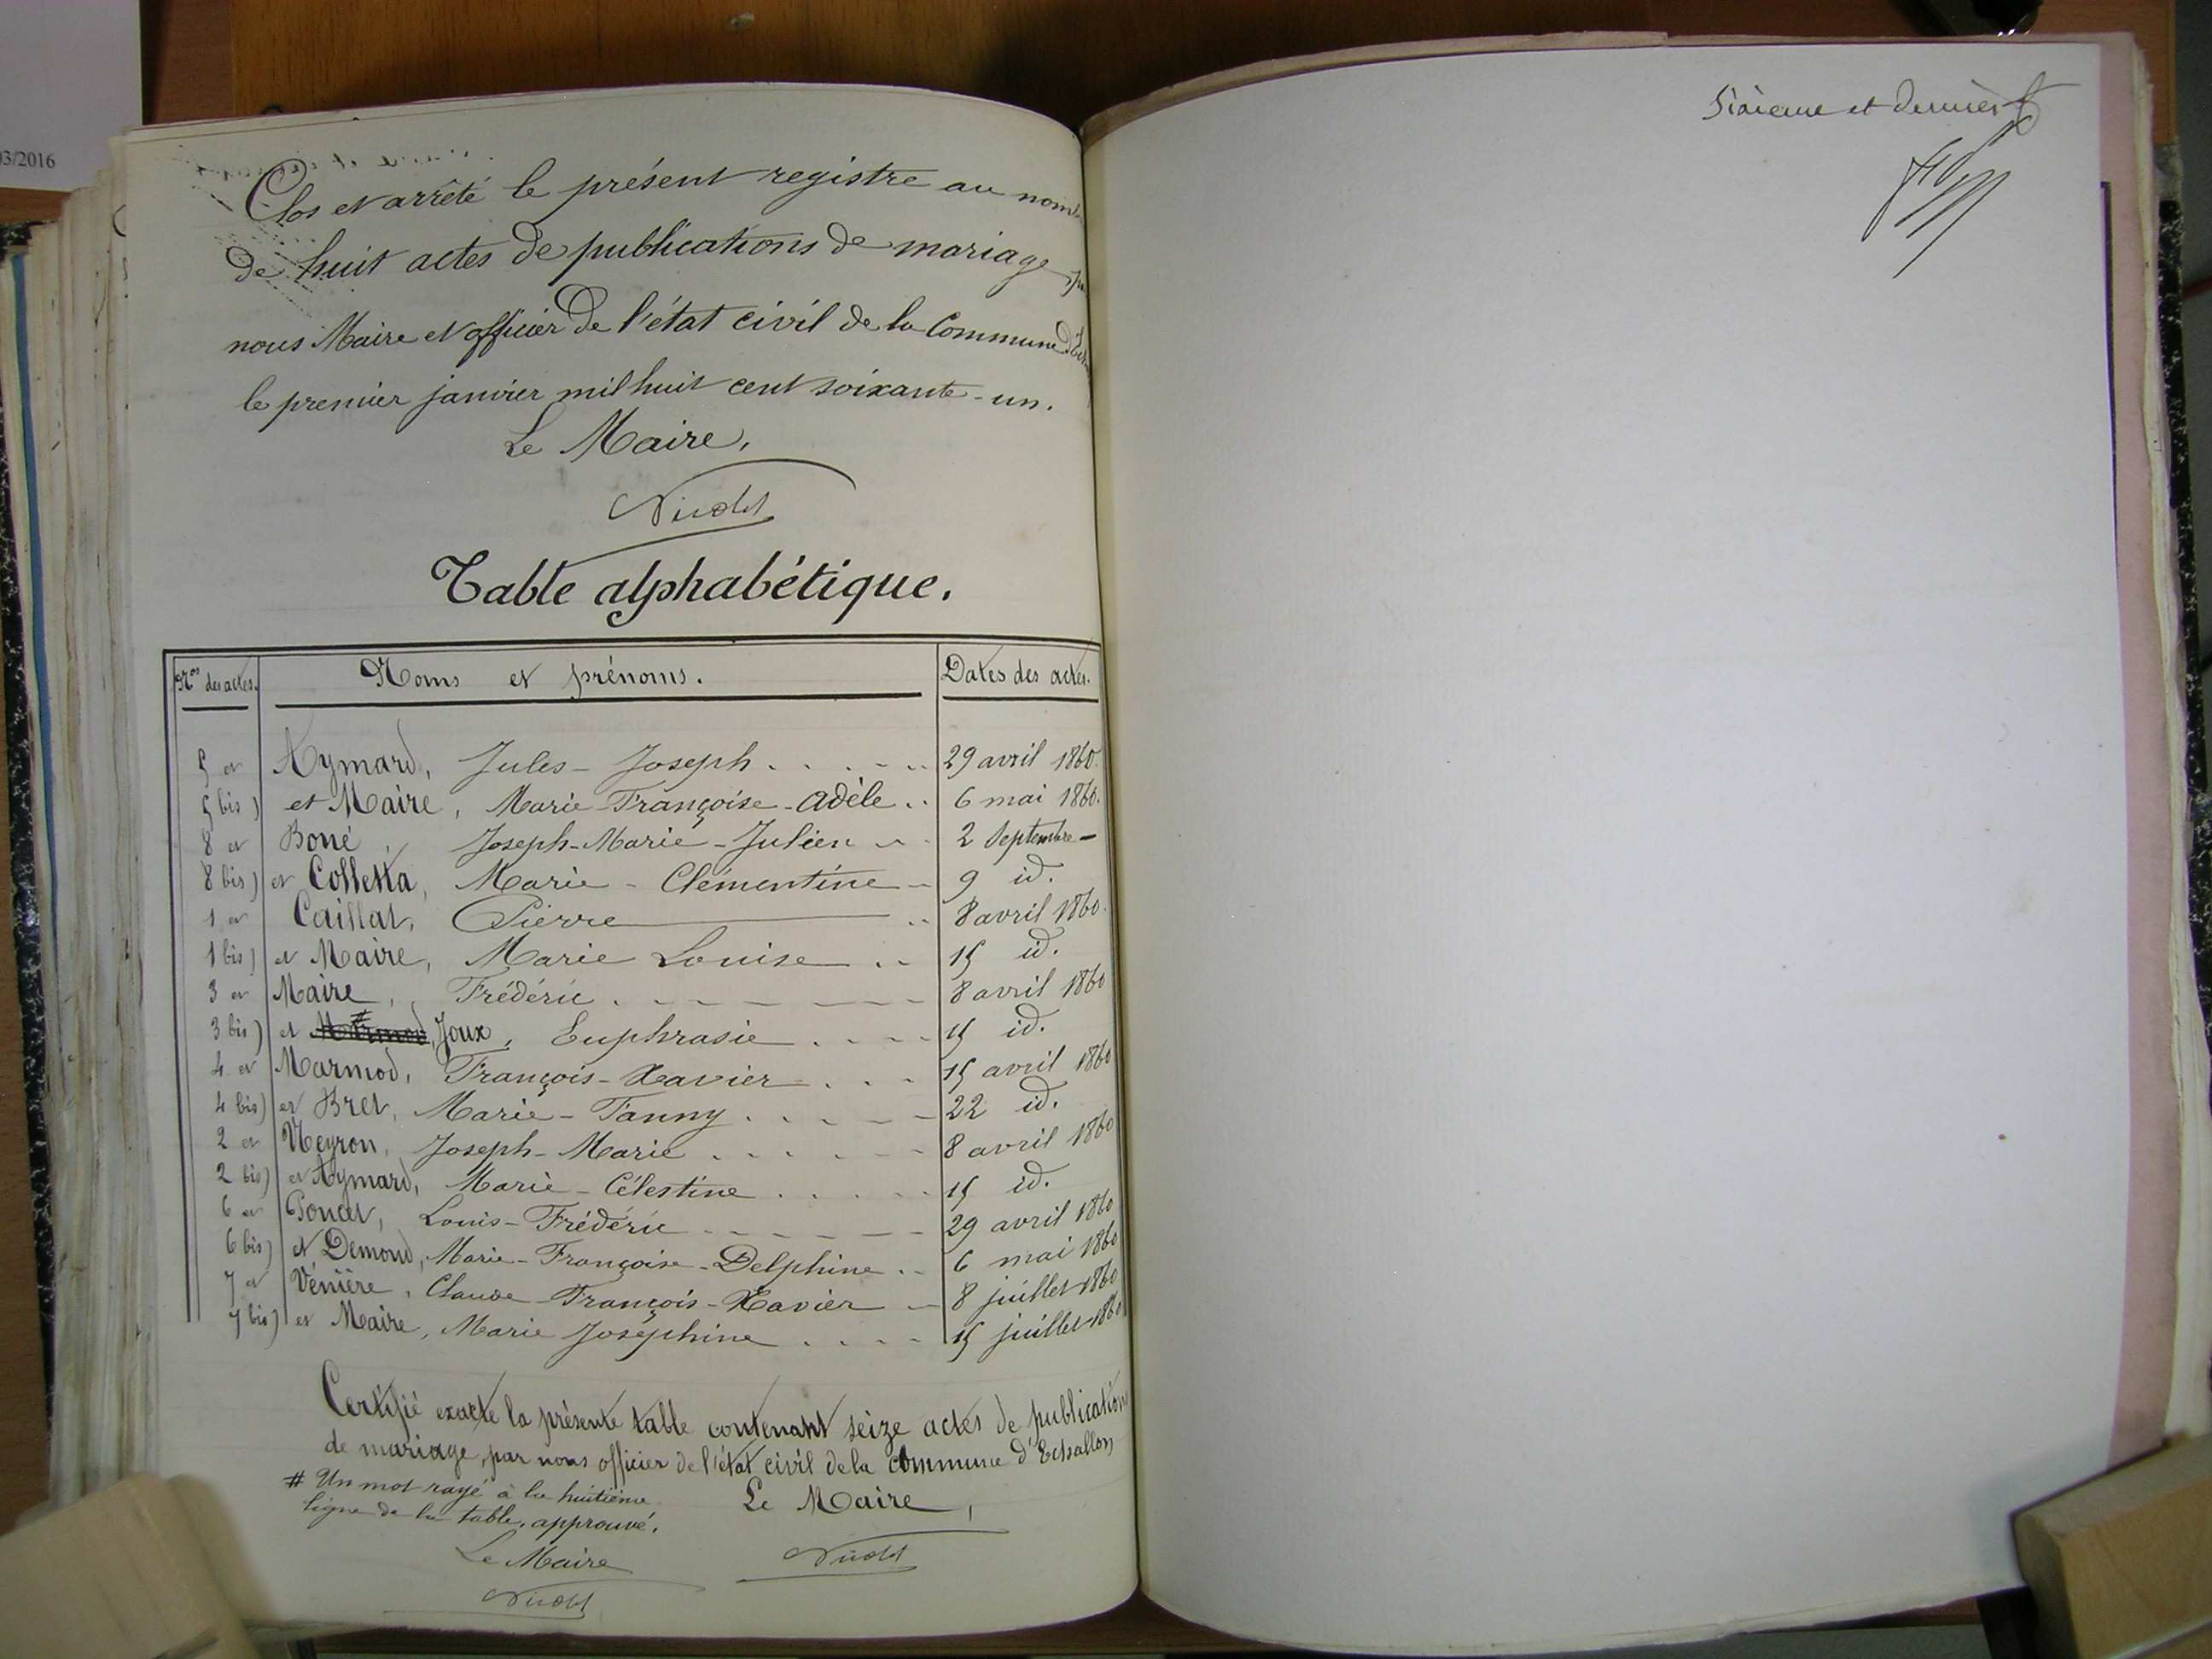 03/2016
Clos et arrêté le présent registre au nom
de huit actes de publications de mariage
nous Maire et officier de l'état civil de la Commune
le premier janvier mil huit cent soixante-un.
Le Maire,
Nicolet
Table alphabétique.
Nos des actes. Noms et prénoms. Dates des actes.
5 et Aymard, Jules-Joseph 29 avril 1860.
5 bis) et Maire, Marie-Françoise-Adèle 6 mai 1860.
8 et Boné, Joseph-Marie-Julien 2 Septembre -
8 bis) et Colletta, Marie-Clémentine 9 id.
1 et Caillat, Pierre 8 avril 1860.
1 bis) et Maire, Marie Louise 15 id.
3 et Maire, Frédéric 8 avril 1860
3 bis) et # Marmod, Joux, Euphrasie 15 id.
4 et Marmod, François-Xavier 15 avril 1860
4 bis) et Bret, Marie-Fanny 22 id.
2 et Neyron, Joseph-Marie 8 avril 1860
2 bis) et Aymard, Marie-Célestine 15 id.
6 et Poncet, Louis-Frédéric 29 avril 1860
6 bis) et Demond, Marie-Françoise-Delphine 6 mai 1860
7 et Vénière, Claude-François-Xavier 8 juillet 1860
7 bis) et Maire, Marie Joséphine 15 juillet 1860
Certifié exacte la présente table contenant seize actes de publications
de mariage, par nous officier de l'état civil de la commune d'Echallon
# Un mot rayé à la huitième
ligne de la table, approuvé.
Le Maire,
Nicolet
Le Maire
Nicolet
Sixième et dernier